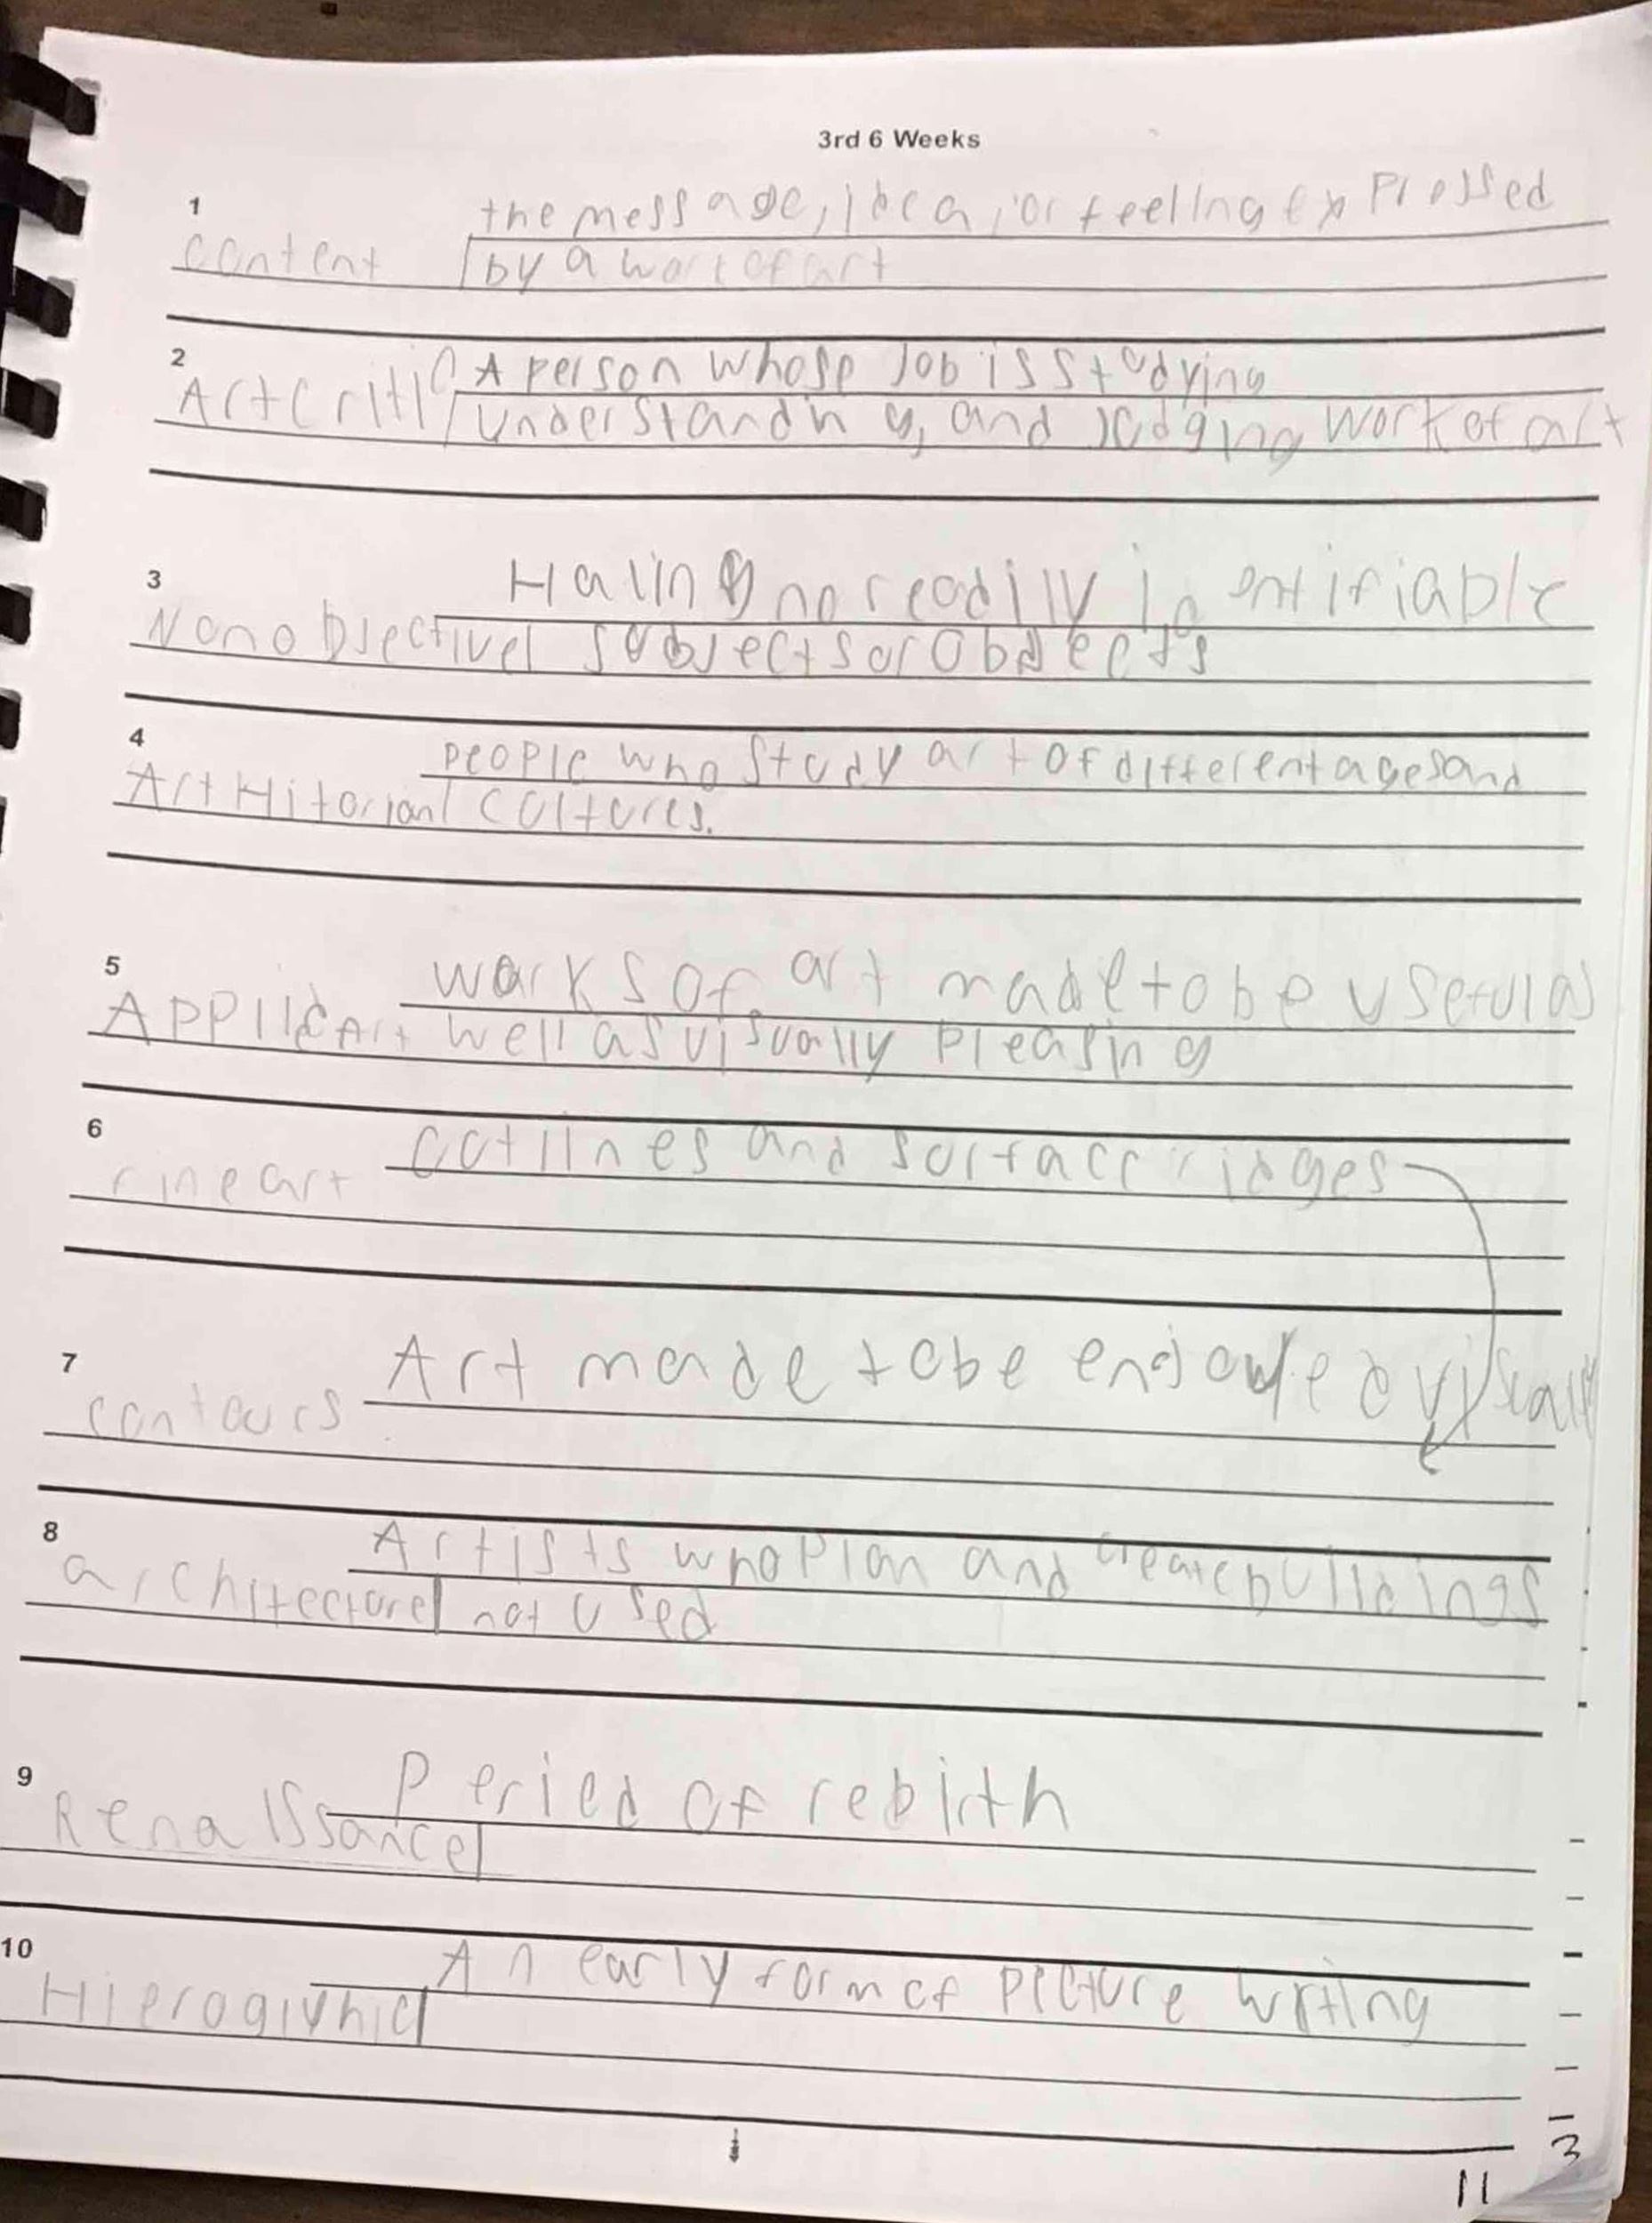 3rd 6 Weeks
1
the message, idea, or feeling expressed
content by a work of art
2
Art Critic A person whose Job is studying
understanding, and judging work of art
3
Having no readily identifiable
Nonobjective subjects or objects
4
people who study art of different ages and
Art Hitorian cultures.
5
works of art made to be useful as
Applied Art well as visually pleasing
6
outlines and surface ridges
fine art
7
Art made to be enjoyed visually
contours
8
Artists who plan and create buildings
architecture not used
9
Period of rebirth
Renaissance
10
An early form of picture writing
Hieroglyhic
3
11